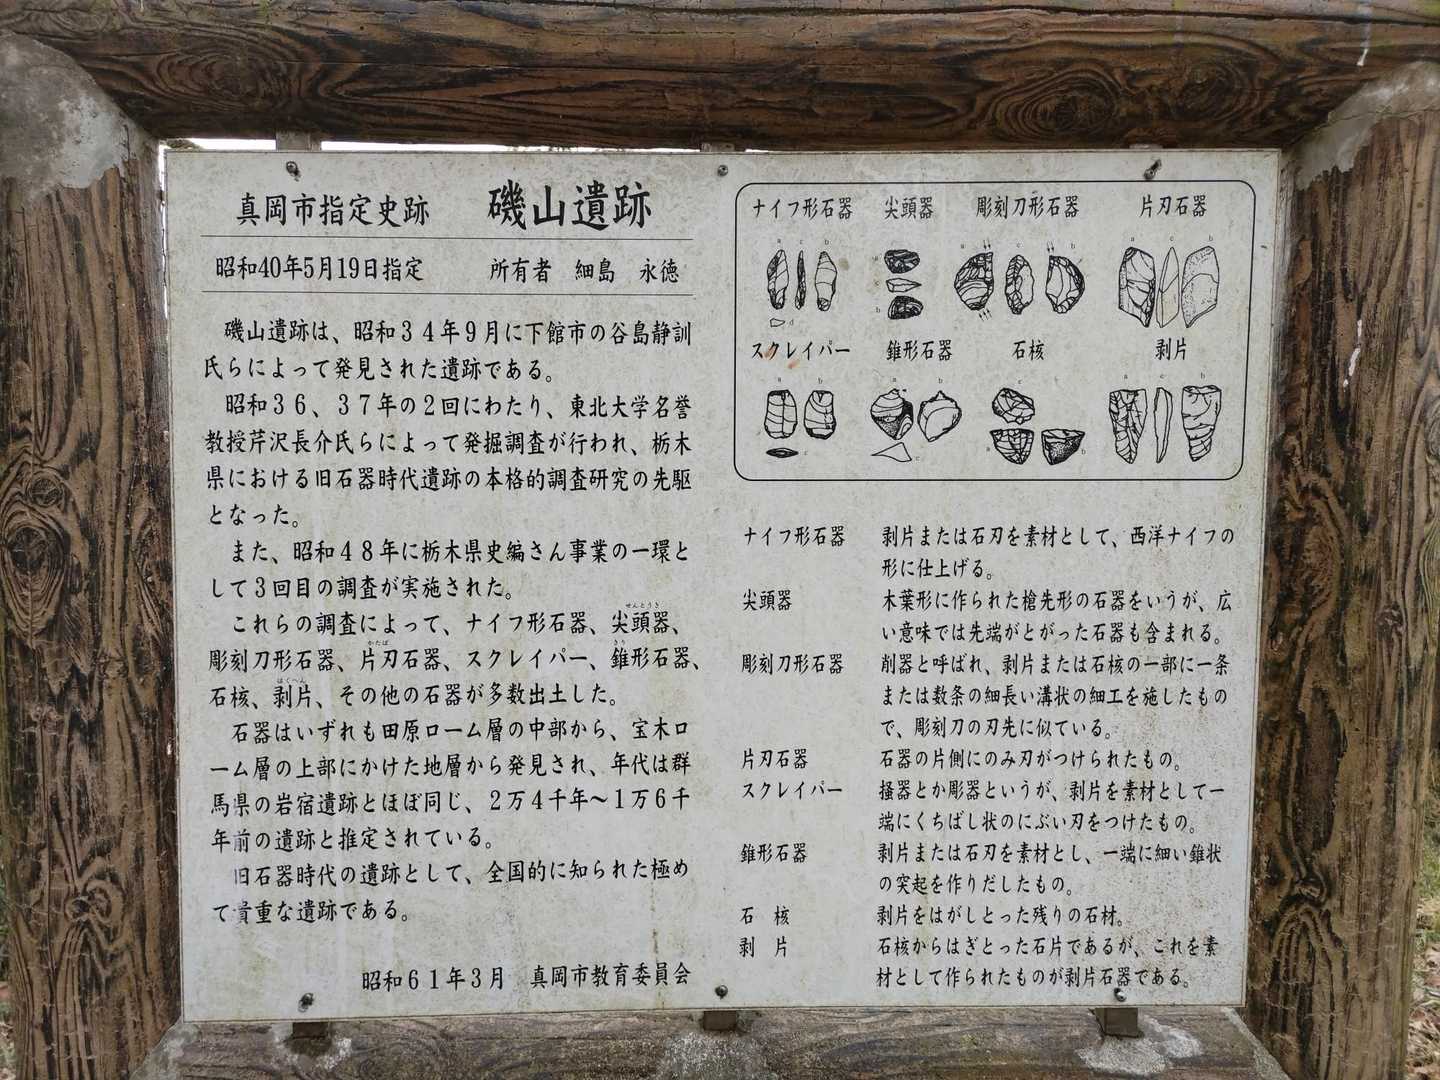 真岡市指定史跡　磯山遺跡
昭和40年5月19日指定　所有者　細島　永徳
磯山遺跡は、昭和３４年９月に下館市の谷島静訓
氏らによって発見された遺跡である。
昭和３６、３７年の２回にわたり、東北大学名誉
教授芹沢長介氏らによって発掘調査が行われ、栃木
県における旧石器時代遺跡の本格的調査研究の先駆
となった。
また、昭和４８年に栃木県史編さん事業の一環と
して３回目の調査が実施された。
これらの調査によって、ナイフ形石器、尖頭器、
彫刻刀形石器、片刃石器、スクレイパー、錐形石器、
石核、剥片、その他の石器が多数出土した。
石器はいずれも田原ローム層の中部から、宝木ロ
ーム層の上部にかけた地層から発見され、年代は群
馬県の岩宿遺跡とほぼ同じ、２万４千年〜１万６千
年前の遺跡と推定されている。
旧石器時代の遺跡として、全国的に知られた極め
て貴重な遺跡である。
昭和６１年３月　真岡市教育委員会
ナイフ形石器　尖頭器　彫刻刀形石器　片刃石器
スクレイパー　錐形石器　石核　剥片
ナイフ形石器　剥片または石刃を素材として、西洋ナイフの
形に仕上げる。
尖頭器　木葉形に作られた槍先形の石器をいうが、広
い意味では先端がとがった石器も含まれる。
彫刻刀形石器　削器と呼ばれ、剥片または石核の一部に一条
または数条の細長い溝状の細工を施したもの
で、彫刻刀の刃先に似ている。
片刃石器　石器の片側にのみ刃がつけられたもの。
スクレイパー　掻器とか彫器というが、剥片を素材として一
端にくちばし状のにぶい刃をつけたもの。
錐形石器　剥片または石刃を素材とし、一端に細い錐状
の突起を作りだしたもの。
石　核　剥片をはがしとった残りの石材。
剥　片　石核からはぎとった石片であるが、これを素
材として作られたものが剥片石器である。